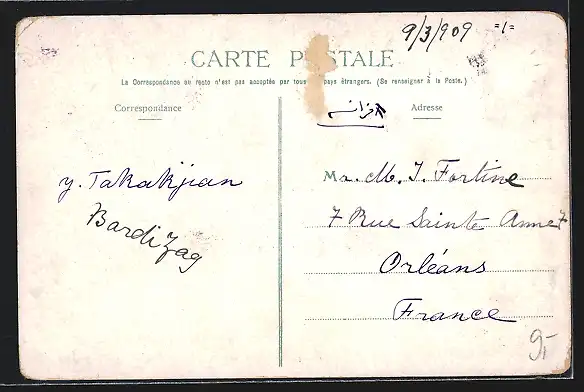 9/3/909 =1=
CARTE POSTALE
La Correspondance au recto n'est pas acceptée par tous pays étrangers. (Se renseigner à la Poste.)
Correspondance
Adresse
فرانسه
y. Takakjian
Bardizag
Mr. M. J. Fortine
7 Rue Sainte Anne 7
Orléans
France
9,-